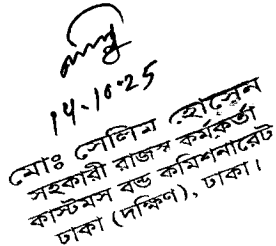 14.10.25
মোঃ সেলিম হোসেন
সহকারী রাজস্ব কর্মকর্তা
কাস্টমস বন্ড কমিশনারেট
ঢাকা (দক্ষিণ), ঢাকা।